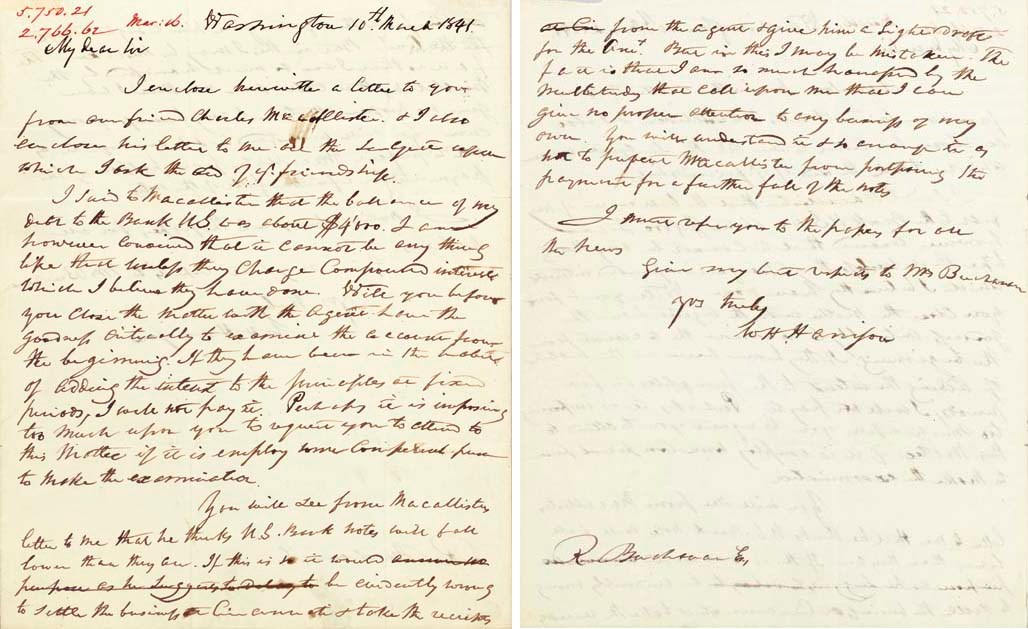 5.750.21
2.766.62
Mar. 16.
Washington 10th March 1841.
My dear Sir
I enclose herewith a letter to you
from our friend Charles Macallister. & I also
enclose his letter to me on the subject upon
which I ask the aid of yr. friendship.
I said to Macallister that the balance of my
debt to the Bank U.S. was about $4000. I am
however convinced that it cannot be any thing
like that unless they charge Compound interest
which I believe they have done. Will you before
you close the matter with the Agent have the
goodness critically to examine the account from
the beginning. If they have been in the habit
of adding the interest to the principle at fixed
periods, I will not pay it. Perhaps it is imposing
too much upon you to require you to attend to
this Matter if it is employ some Competent person
to make the examination.
You will see from Macallisters
letter to me that he thinks U.S. Bank notes will fall
lower than they are. If this is so it would
purpose as he suggests to delay to be evidently wrong
to settle the business at Cincinnati & take the receipts
at Cin from the agent & give him a Sight Draft
for the Amt. But in this I may be mistaken. The
fact is that I am so much harassed by the
multitude that call upon me that I can
give no proper attention to any business of my
own. You will understand it & so arrange it as
not to prevent Macallister from postponing the
payment for a further fall of the notes
I must refer you to the papers for all
the news
Give my best respects to Mrs Buchanan
Yrs truly
W H Harrison
R. Buchanan Esq